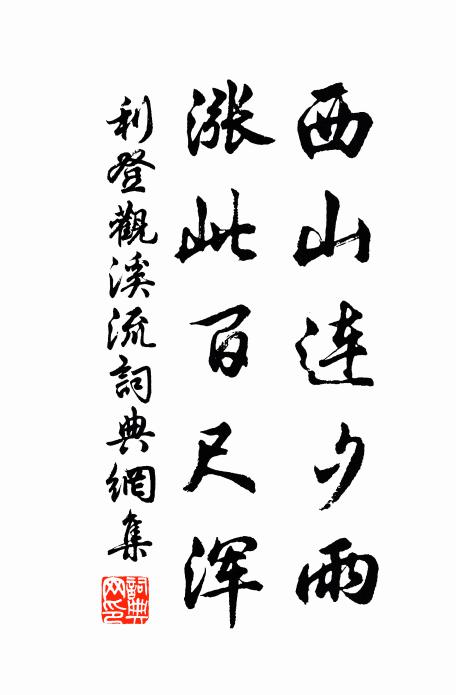 西山连夕雨
涨此百尺浑
利登觀溪流詞典網集
詞典网印